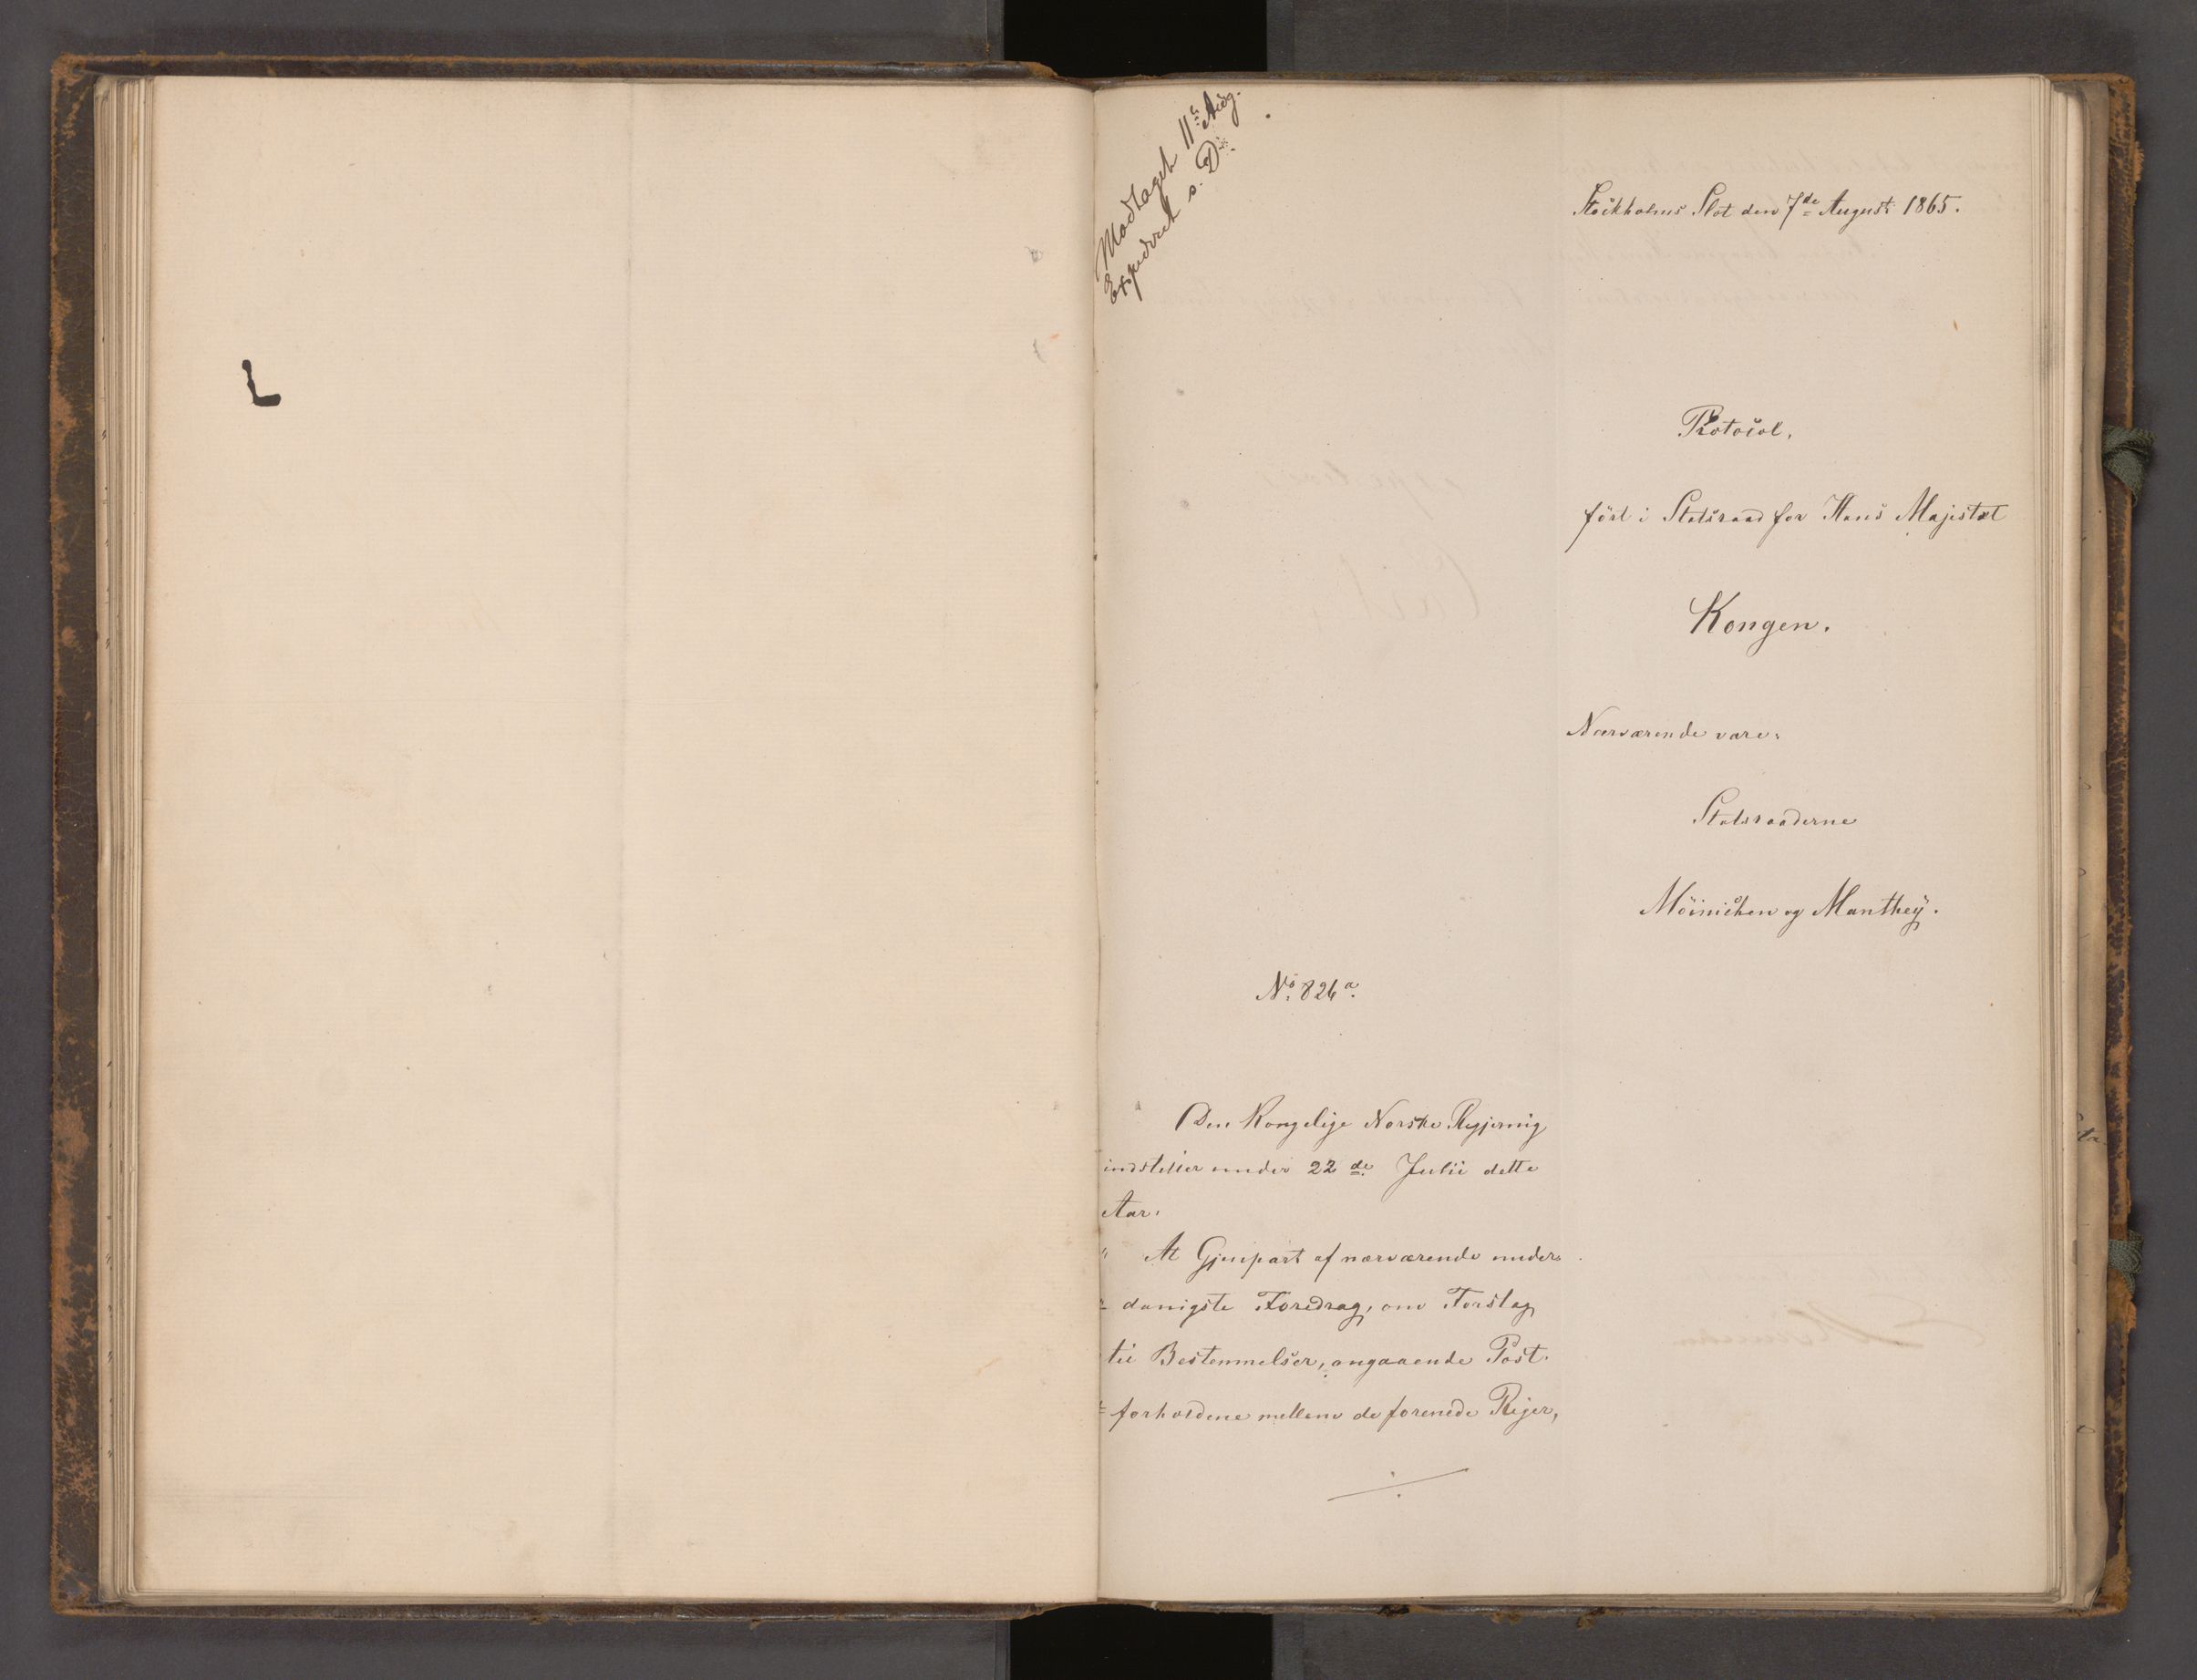 Modtaget 11te Aug.
Expederet s. D.
Stockholms Slot den 7de August 1865.
Protocol,
ført i Statsraad for Hans Majestæt
Kongen.
Nærværende vare:
Statsraaderne
Möinichen og Manthey.
No. 826a.
Den Kongelige Norske Regjering
indstiller under 22de Julii dette
Aar:
" At Gjenpart af nærværende under-
- danigste Foredrag, om Forslag
til Bestemmelser, angaaende Post-
- forholdene mellem de forenede Riger,